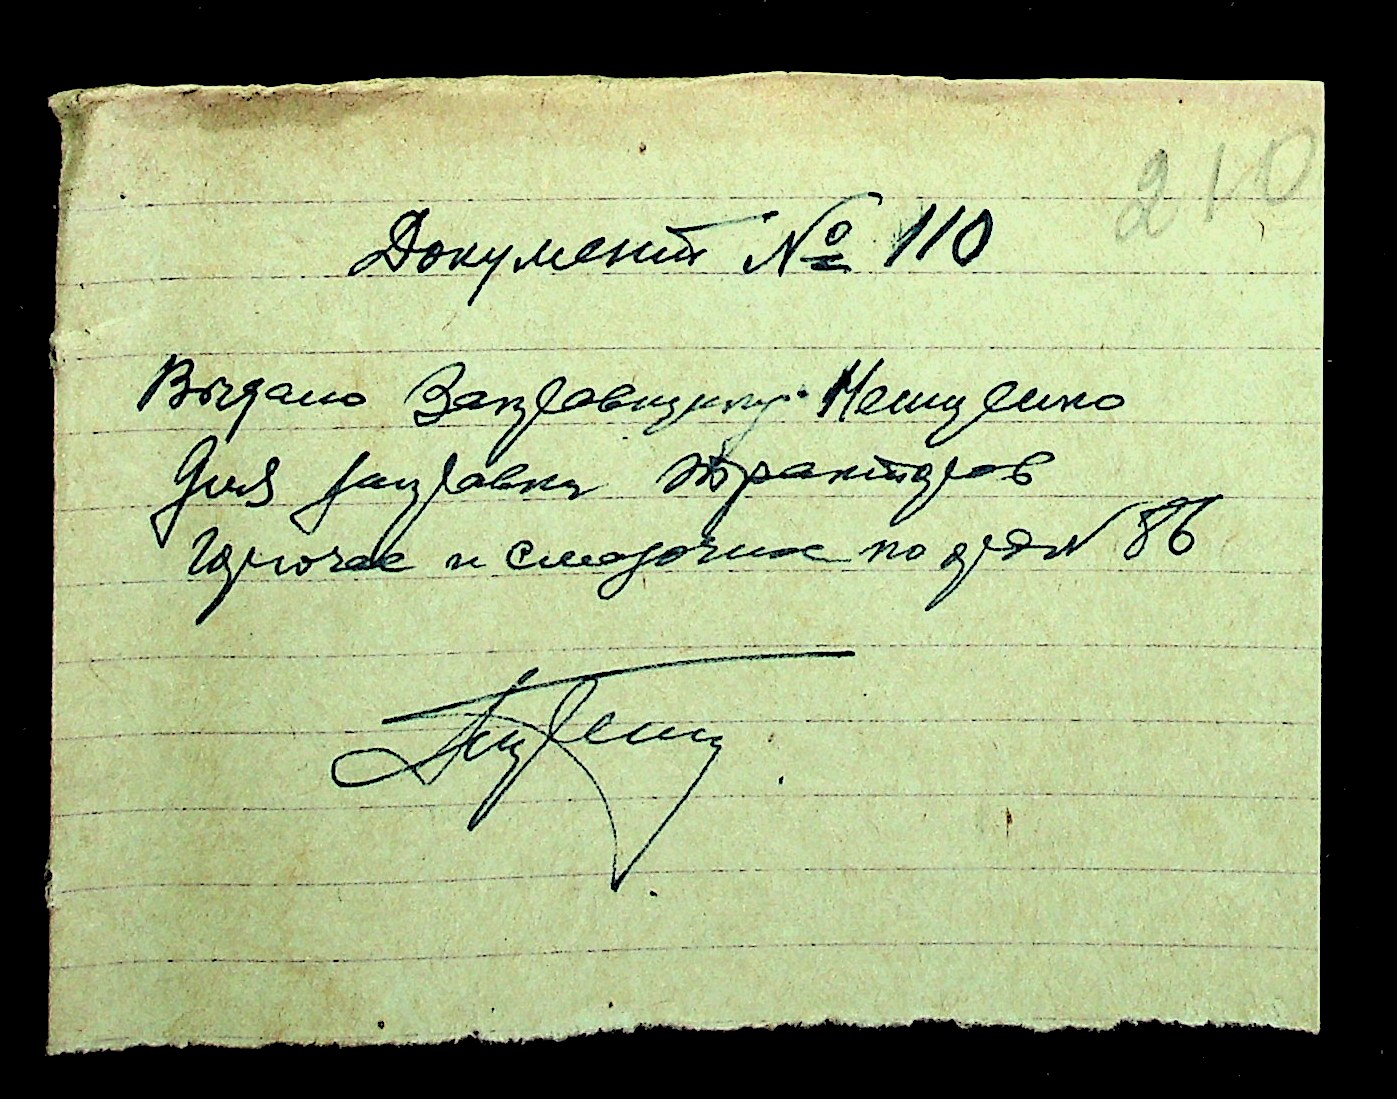 210
Документ № 110
Выдано Заправщику Мещеенко
Для заправки тракторов
Горючее и смазочное по орд № 86